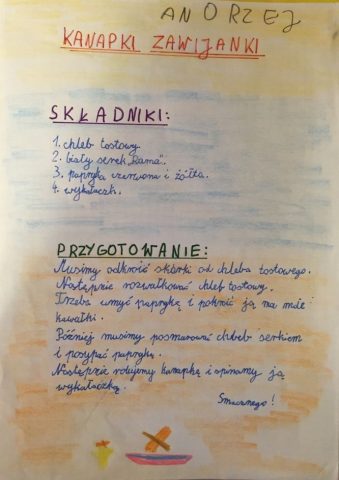 ANDRZEJ
KANAPKI ZAWIJANKI
SKŁADNIKI:
1. chleb tostowy.
2. biały serek „Rama".
3. papryka czerwona i żółta.
4. wykałaczki.
PRZYGOTOWANIE:
Musimy odkroić skórki od chleba tostowego.
Następnie rozwałkować chleb tostowy.
Trzeba umyć paprykę i pokroić ją na małe
kawałki.
Później musimy posmarować chleb serkiem
i posypać papryką.
Następnie rolujemy kanapkę i spinamy ją
wykałaczką.
Smacznego!